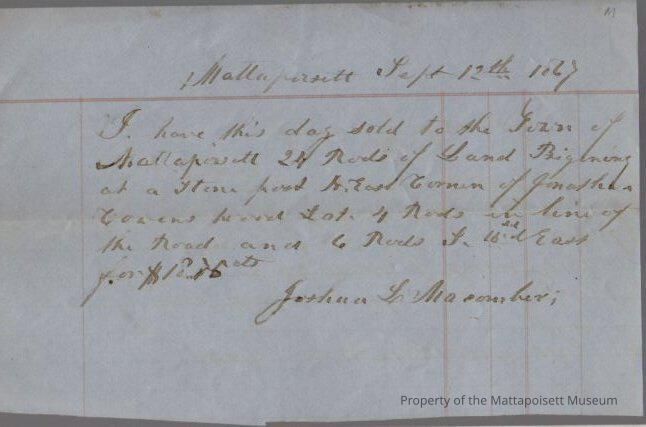 M
Mattapoisett Sept 12th 1867
I. have this day sold to the Town of
Mattapoisett 24 Rods of Land Bigining
at a Stone post N. East Corner of Jonathan
Cowens wood Lot 4 Rods in line of
the Road and 6 Rods S. East
for $
Joshua L Macomber;
Property of the Mattapoisett Museum